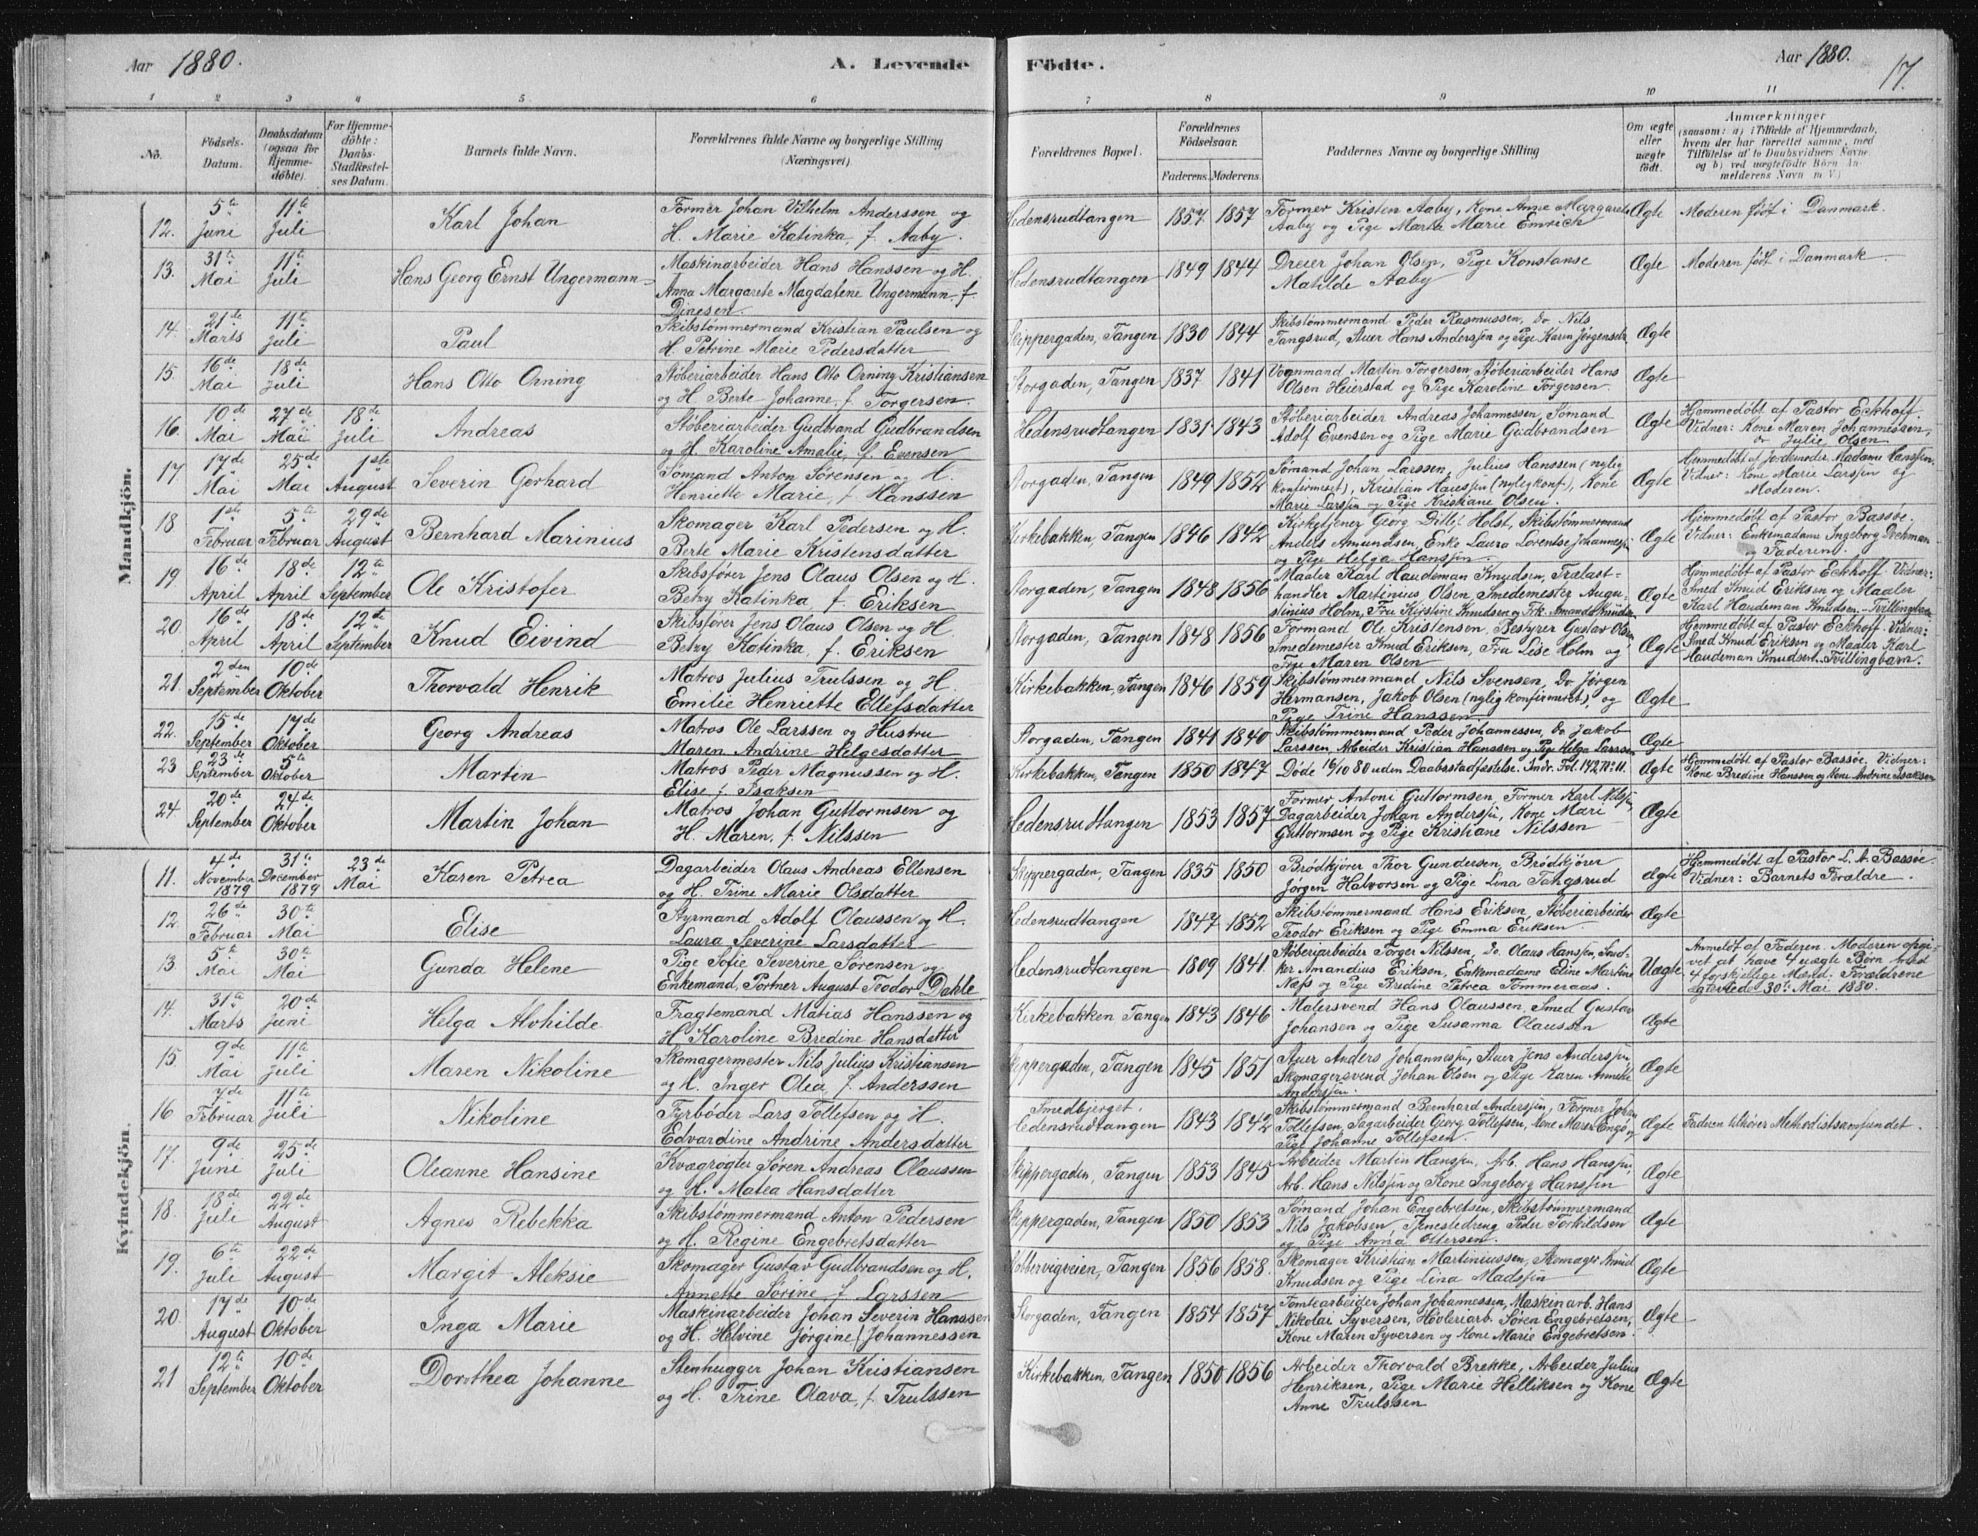 Aar 1880. A. Levende Födte. Aar 1880. 17.
1 2 3 4 5 6 7 8 9 10 11
No. Födsels-Datum. Daabsdatum (ogsaa for Hjemmedöbte). For Hjemmedöbte: Daabs-Stadfæstelses Datum. Barnets fulde Navn. Forældrenes fulde Navne og borgerlige Stilling (Næringsvei). Forældrenes Bopæl. Forældrenes Födselsaar. Faderens. Moderens. Faddernes Navne og borgerlige Stilling Om ægte eller uægte födt. Anmærkninger (saasom: a) i Tilfælde af Hjemmedaab, hvem der har forrettet samme, med Tilföielse af to Daabsvidners Navne og b) ved uægtefödte Börn Anmelderens Navn m. V.)
Mandkjön.
12. 5te Juni 11te Juli Karl Johan Former Johan Vilhelm Anderssen og H. Marie Katinka, f. Aaby. Hedensrudtangen 1857 1857 Former Kristen Aaby, Kone Anne Margarete Aaby og Pige Martha Marie Emrich Ægte Moderen født i Danmark.
13. 31te Mai 11te Juli Hans Georg Ernst Ungermann Maskinarbeider Hans Hanssen og H. Anna Margarete Magdalene Ungermann f. Dinesen. Hedensrudtangen 1849 1844 Dreier Johan Olsen, Pige Konstanse Matilde Aaby Ægte Moderen født i Danmark
14. 21de Marts 11te Juli Paul Skibstømmermand Kristian Paulsen og H. Petrine Marie Pedersdatter Skippergaden, Tangen 1830 1844 Skibstømmermand Peder Rasmussen, Do Nils Tangsrud, Stuer Hans Anderssen og Pige Karin Jørgensen Ægte
15. 16de Mai 18de Juli Hans Otto Orning Støberiarbeider Hans Otto Orning Kristiansen og H. Berte Johanne, f. Torgersen. Storgaden, Tangen 1837 1841 Vognmand Martin Torgersen, Støberiarbeider Hans Olsen Heierstad og Pige Karoline Torgersen. Ægte
16. 10de Mai 27de Mai 18de Juli Andreas Støberiarbeider Gudbrand Gudbrandsen og H. Karoline Amalie, f. Evensen Hedensrudtangen 1831 1843 Støberiarbeider Andreas Johannessen, Sømand Adolf Evensen og Pige Marie Gudbrandsen Ægte Hjemmedøbt af Pastor Eckhoff. Vidner: Kone Maren Johannessen, do Julie Olsen
17. 17de Mai 25de Mai 1ste August Severin Gerhard Sømand Anton Sørensen og H. Henriette Marie, f. Hanssen Storgaden, Tangen 1849 1852 Sømand Johan Larssen, Julius Hanssen (nylig konfirmeret), Kristian Hanssen (nylig konf.), Kone Marie Larssen og Pige Kristiane Olsen. Ægte Hjemmedøbt af Jordemoder Madame Hanssen. Vidner: Kone Marie Larssen og Moderen.
18 1ste Februar 5te Februar 29de August Bernhard Marinius Skomager Karl Pedersen og H. Berte Marie Kristensdatter Kirkebakken, Tangen 1846 1842 Kirketjener Georg Ditlef Holst, Skibstømmermand Anders Amundsen, Enke Laura Lorentse Johannessen og Pige Helga Hanssen Ægte Hjemmedøbt af Pastor Bassøe. Vidner: Enkemadame Ingeborg Drehman og Faderen.
19 16de April 18de April 12te September Ole Kristofer Skibsfører Jens Olaus Olsen og H. Betzy Katinka f. Eriksen Storgaden, Tangen 1848 1856 Maaler Karl Haudeman Knudsen, Trælasthandler Martenius Olsen, Smedemester Augustinius Holm, Fru Kirstine Knudsen og Frk. Amanda Knudsen Ægte Hjemmedøbt af Pastor Eckhoff. Vidner: Smed Knud Eriksen og Maaler Karl Haudeman Knudsen. Tvillingbarn
20. 16de April 18de April 12te September Knud Eivind Skibsfører Jens Olaus Olsen og H. Betzy Katinka, f. Eriksen Storgaden, Tangen 1848 1856 Formand Ole Kristensen, Bestyrer Gustav Olsen, Smedemester Knud Eriksen, Fru Lise Holm og Frue Maren Olsen Ægte Hjemmedøbt af Pastor Eckhoff. Vidner: Smed Knud Eriksen og Maaler Karl Haudeman Knudsen. Tvillingbarn.
21. 2den September 10de Oktober Thorvald Henrik Matros Julius Trulssen og H. Emilie Henriette Ellefsdatter Kirkebakken, Tangen 1846 1859 Skibstømmermand Nils Svensen, Do Jørgen Hermansen, Jakob Olsen (nylig konfirmeret), og Pige Trine Hanssen Ægte
22. 15de September 17de Oktober Georg Andreas Matros Ole Larssen og Hustru Maren Andrine Helgesdatter Storgaden, Tangen 1841 1840 Skibstømmermand Peder Johannessen, Do Jakob Larssen, Arbeider Kristian Hanssen og Pige Helga Larssen Ægte
23 23de September 5te Oktober Martin Matros Peder Magnussen og H. Elise f. Isaksen Kirkebakken, Tangen 1850 1847 Døde 16/10 80 uden Daabsstadfæstelse. Indr. Fol. 142 No 11. Ægte Hjemmedøbt af Pastor Bassøe. Vidner: Kone Bredine Hanssen og Kone Andrine Isaksen
24 20de September 24de Oktober Martin Johan Matros Johan Guttormsen og H. Maren, f. Nilssen Hedensrudtangen 1853 1857 Former Antoni Guttormsen, Former Karl Nilssen, Dagarbeider Johan Anderssen, Kone Mari Guttormsen og Pige Kristiane Nilssen Ægte
Kvindekjön.
11. 4de November 1879 31te December 1879 23de Mai Karen Petrea Dagarbeider Olaus Andreas Ellensen og H. Trine Marie Olsdatter Skippergaden, Tangen 1835 1850 Brødkjører Thor Gundersen, Brødkjører Jørgen Halvorsen og Pige Lina Tangsrud Ægte Hjemmedøbt af Pastor L. A. Bassøe. Vidner: Barnets Forældre.
12. 26de Februar 30te Mai Elise Styrmand Adolf Olaussen og H. Laura Severine Larsdatter Hedensrudtangen 1847 1852 Skibstømmermand Hans Eriksen, Støberiarbeider Teodor Eriksen og Pige Emma Eriksen Ægte
13. 5te Mai 30te Mai Gunda Helene Pige Sofie Severine Sørensen og Enkemand, Portner August Teodor Dahle Hedensrudtangen 1809 1841 Støberiarbeider Torger Nilssen, Do. Olaus Hanssen, Snedker Amandius Eriksen, Enkemadame Eline Martine Næss og Pige Bredine Petrea Tømmeraas. Uægte Anmeldt af Faderen. Moderen opgivet at have 4 uægte Børn med 4 forskjellige Mænd. Forældrene ægteviede 30te Mai 1880.
14. 31te Marts 20de Juni Helga Alvhilde Fragtemand Matias Hanssen og H. Karoline Bredine Hansdatter Kirkebakken Tangen 1843 1846 Malersvend Hans Olaussen, Smed Gustav Johansen og Pige Susanna Olaussen Ægte
15. 9de Mai 11te Juli Maren Nikoline Skomagermester Nils Julius Kristiansen og H. Inger Olea f. Anderssen Skippergaden, Tangen 1845 1851 Stuer Anders Johannessen, Stuer Jens Anderssen, Skomagersvend Johan Olsen og Pige Karen Annette Anderssen. Ægte
16 7de Februar 11te Juli Nikoline Fyrbøder Lars Tollefsen og H. Edvardine Andrine Andersdatter Smedbjerget. Hedensrudtangen 1843 1842 Skibstømmermand Bernhard Anderssen, Former Johan Tollefsen, Dagarbeider Georg Tollefsen, Kone Maren Engø og Pige Johanne Tollefsen. Ægte Faderen tilhører Methodistsamfundet.
17. 9de Juni 25de Juli Oleanne Hansine Kvægrøgter Søren Andreas Olaussen og H. Matea Hansdatter Skippergaden, Tangen 1853 1845 Arbeider Martin Hanssen, Arb. Hans Hanssen, Arb. Hans Nilssen og Kone Ingeborg Hanssen Ægte
18. 18de Juli 22de August Agnes Rebekka Skibstømmermand Anton Pedersen og H. Regine Engebretsdatter Skippergaden, Tangen 1850 1853 Sømand Johan Engebretsen, Skibstømmermand Nils Jakobsen, Tjenestedreng Peder Torkildsen og Pige Anna Ottersen. Ægte
19. 6te Juli 22de August Margit Aleksie Skomager Gustav Gudbrandsen og H. Annette Sørine f. Larssen Tangen 1856 1858. Skomager Kristian Martiniussen, Skomager Knud Knudsen og Pige Lina Madssen Ægte
20. 17de August 10de Oktober Inga Marie Maskinarbeider Johan Severin Hanssen og H. Helvine Jørgine f. Johannessen Storgaden, Tangen 1854 1857 Tomtearbeider Johan Johannessen, Maskinarb. Hans Nikolai Syversen, Høvleriarb. Søren Engebretsen, Kone Maren Syversen og Kone Marie Engebretsen. Ægte
21 12te September 10de Oktober Dorothea Johanne Stenhugger Johan Kristiansen og H. Trine Olava, f. Trulssen Kirkebakken, Tangen 1850 1856 Arbeider Thorvald Brekke, Arbeider Julius Henriksen, Pige Marie Helliksen og Kone Anne Trulssen Ægte